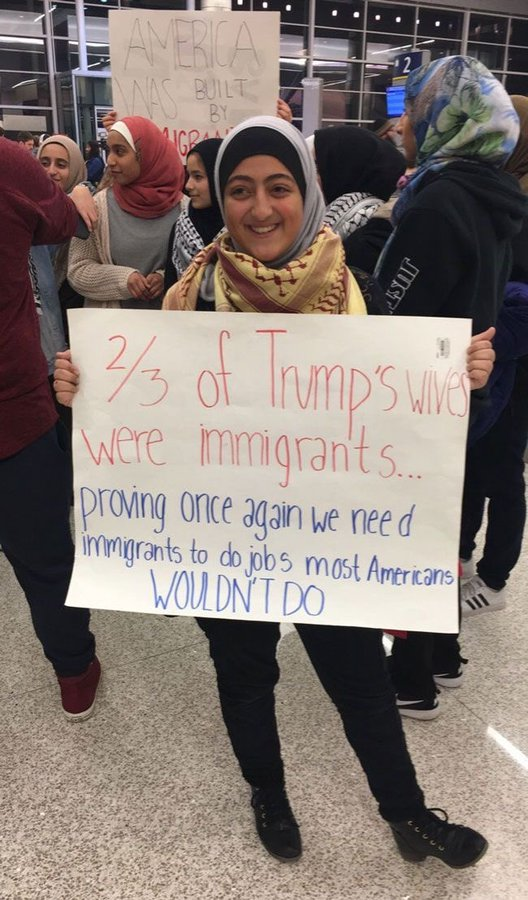 AMERICA
WAS BUILT
BY
IMMIGRANTS
2
JUST
2/3 of Trump's wives
were immigrants...
proving once again we need
immigrants to do jobs most Americans
WOULDN'T DO